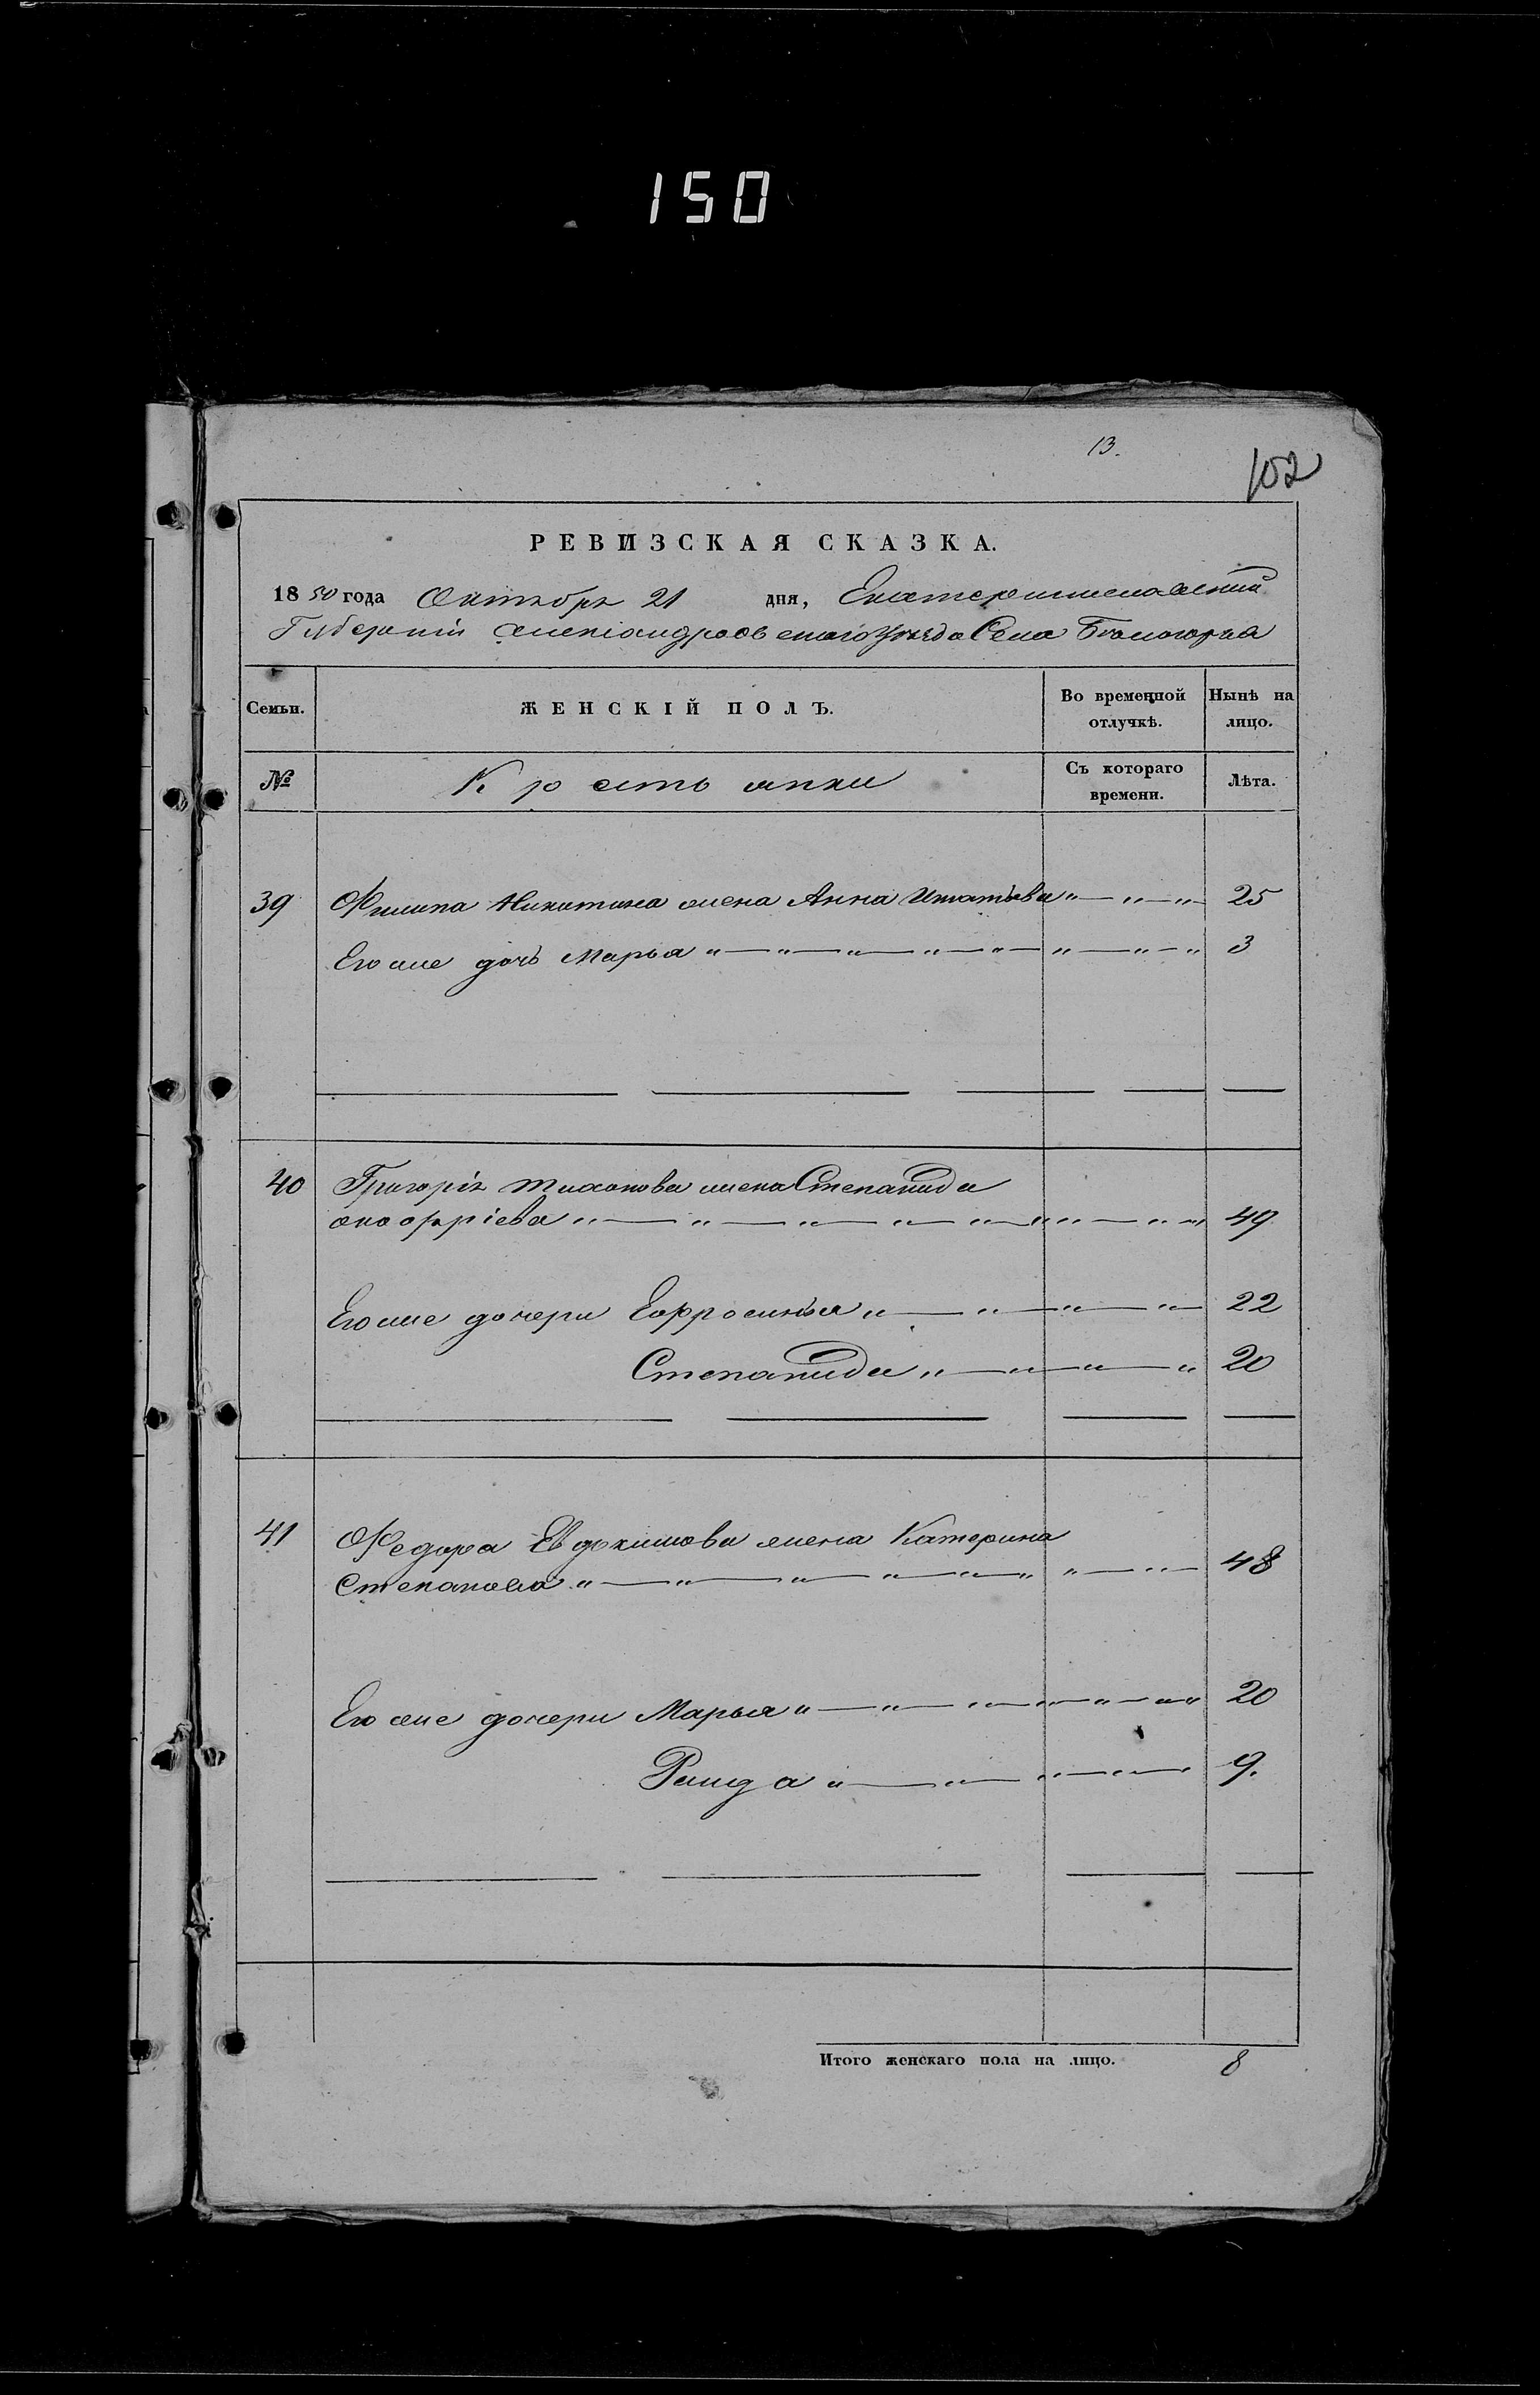 150
13.
102
РЕВИЗСКАЯ СКАЗКА.
1850 года Октября 21 дня, Екатеринославской
Губернiи Александровскаго Уезда Села Белогорья
Семьи. ЖЕНСКІЙ ПОЛЪ. Во временной отлучкѣ. Нынѣ на лицо.
№ Крестьянки Съ котораго времени. Лѣта.
39 Филипа Никитина жена Анна Игнатьева " — " — " 25
Его же дочь Марья " — " — " — " — " — " — " — " 3
40 Григорія Тихонова жена Степанида
" — " — " — " — " — " — " — " 49
Его же дочери Ефросинья " — " — " — " 22
Степанида " — " — " — " 20
41 Федора Евдокимова жена Катерина
Степанова " — " — " — " — " — " — " — 48
Его же дочери Марья " — " — " — " — " — " 20
Раида " — " — " — " — " 9.
Итого женскаго пола на лицо. 8